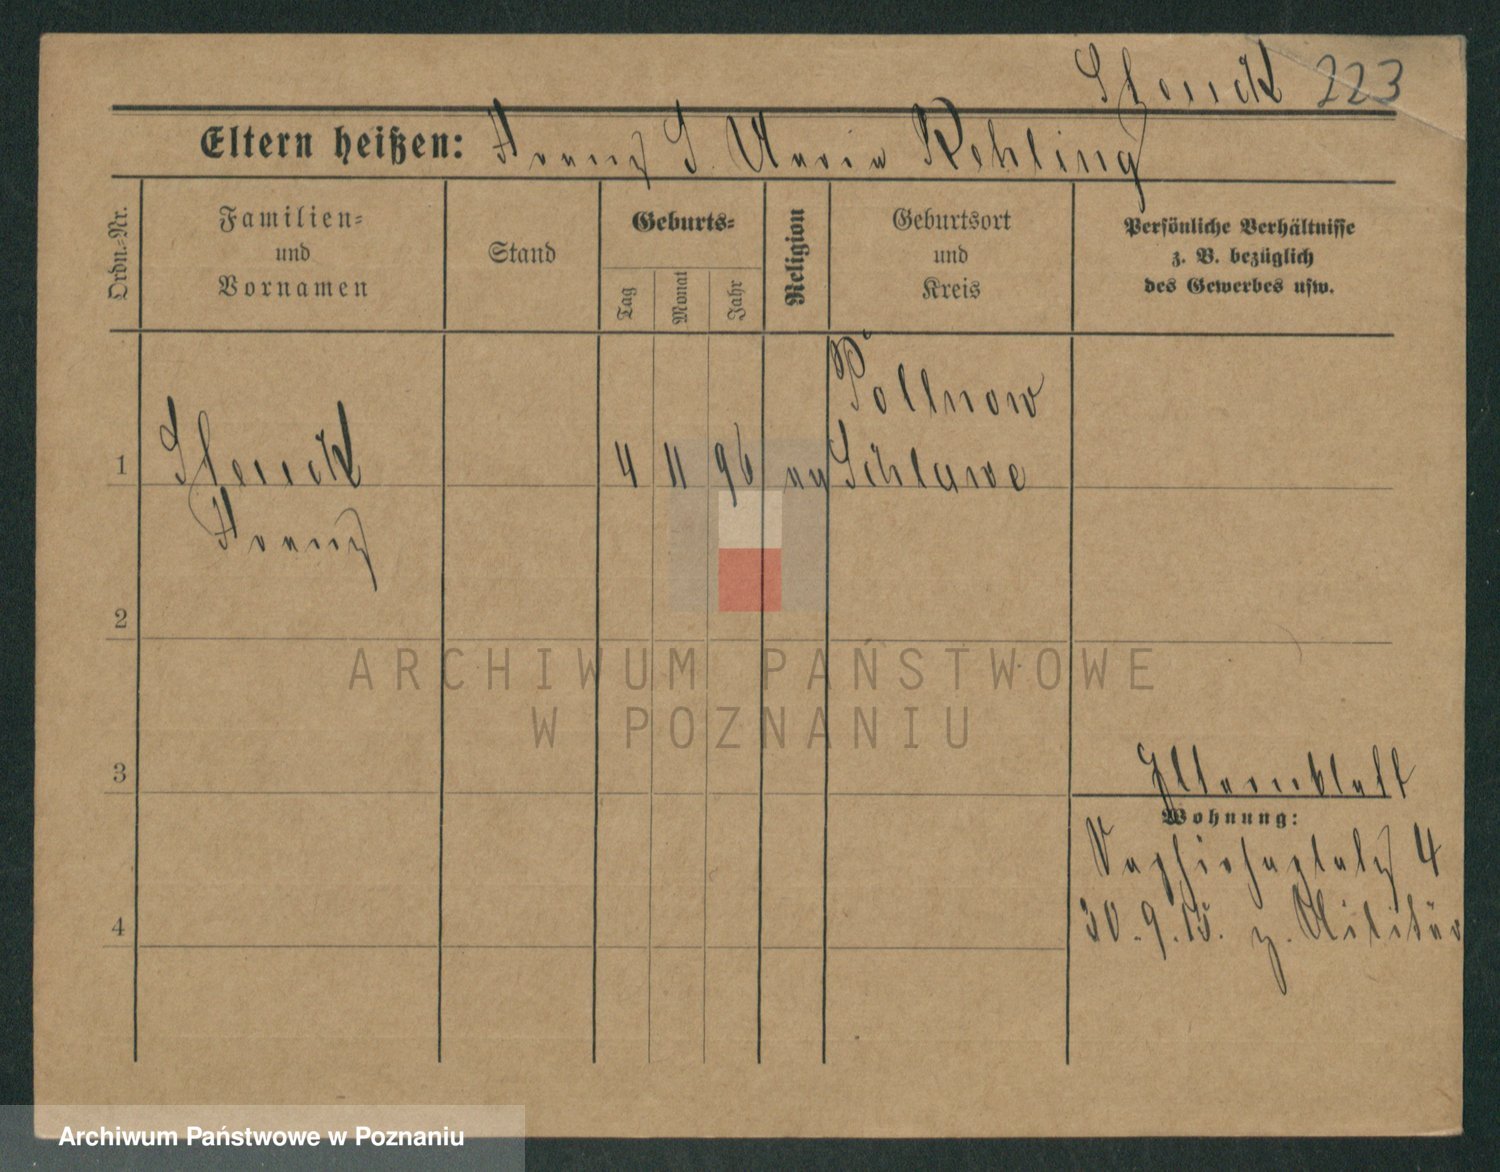 223
Eltern heißen: Franz S. Maria Rehling
Ordn.=Nr.
Familien=
und
Vornamen
Stand
Geburts=
Tag
Monat
Jahr
Religion
Geburtsort
und
Kreis
Persönliche Verhältnisse
z. B. bezüglich
des Gewerbes usw.
Pollnow
1 4 11 96 Schlawe
Franz
2
ARCHIWUM PAŃSTWOWE
W POZNANIU
3
Elternblatt
Wohnung:
4
4
30.9.15. z. Militär
Archiwum Państwowe w Poznaniu